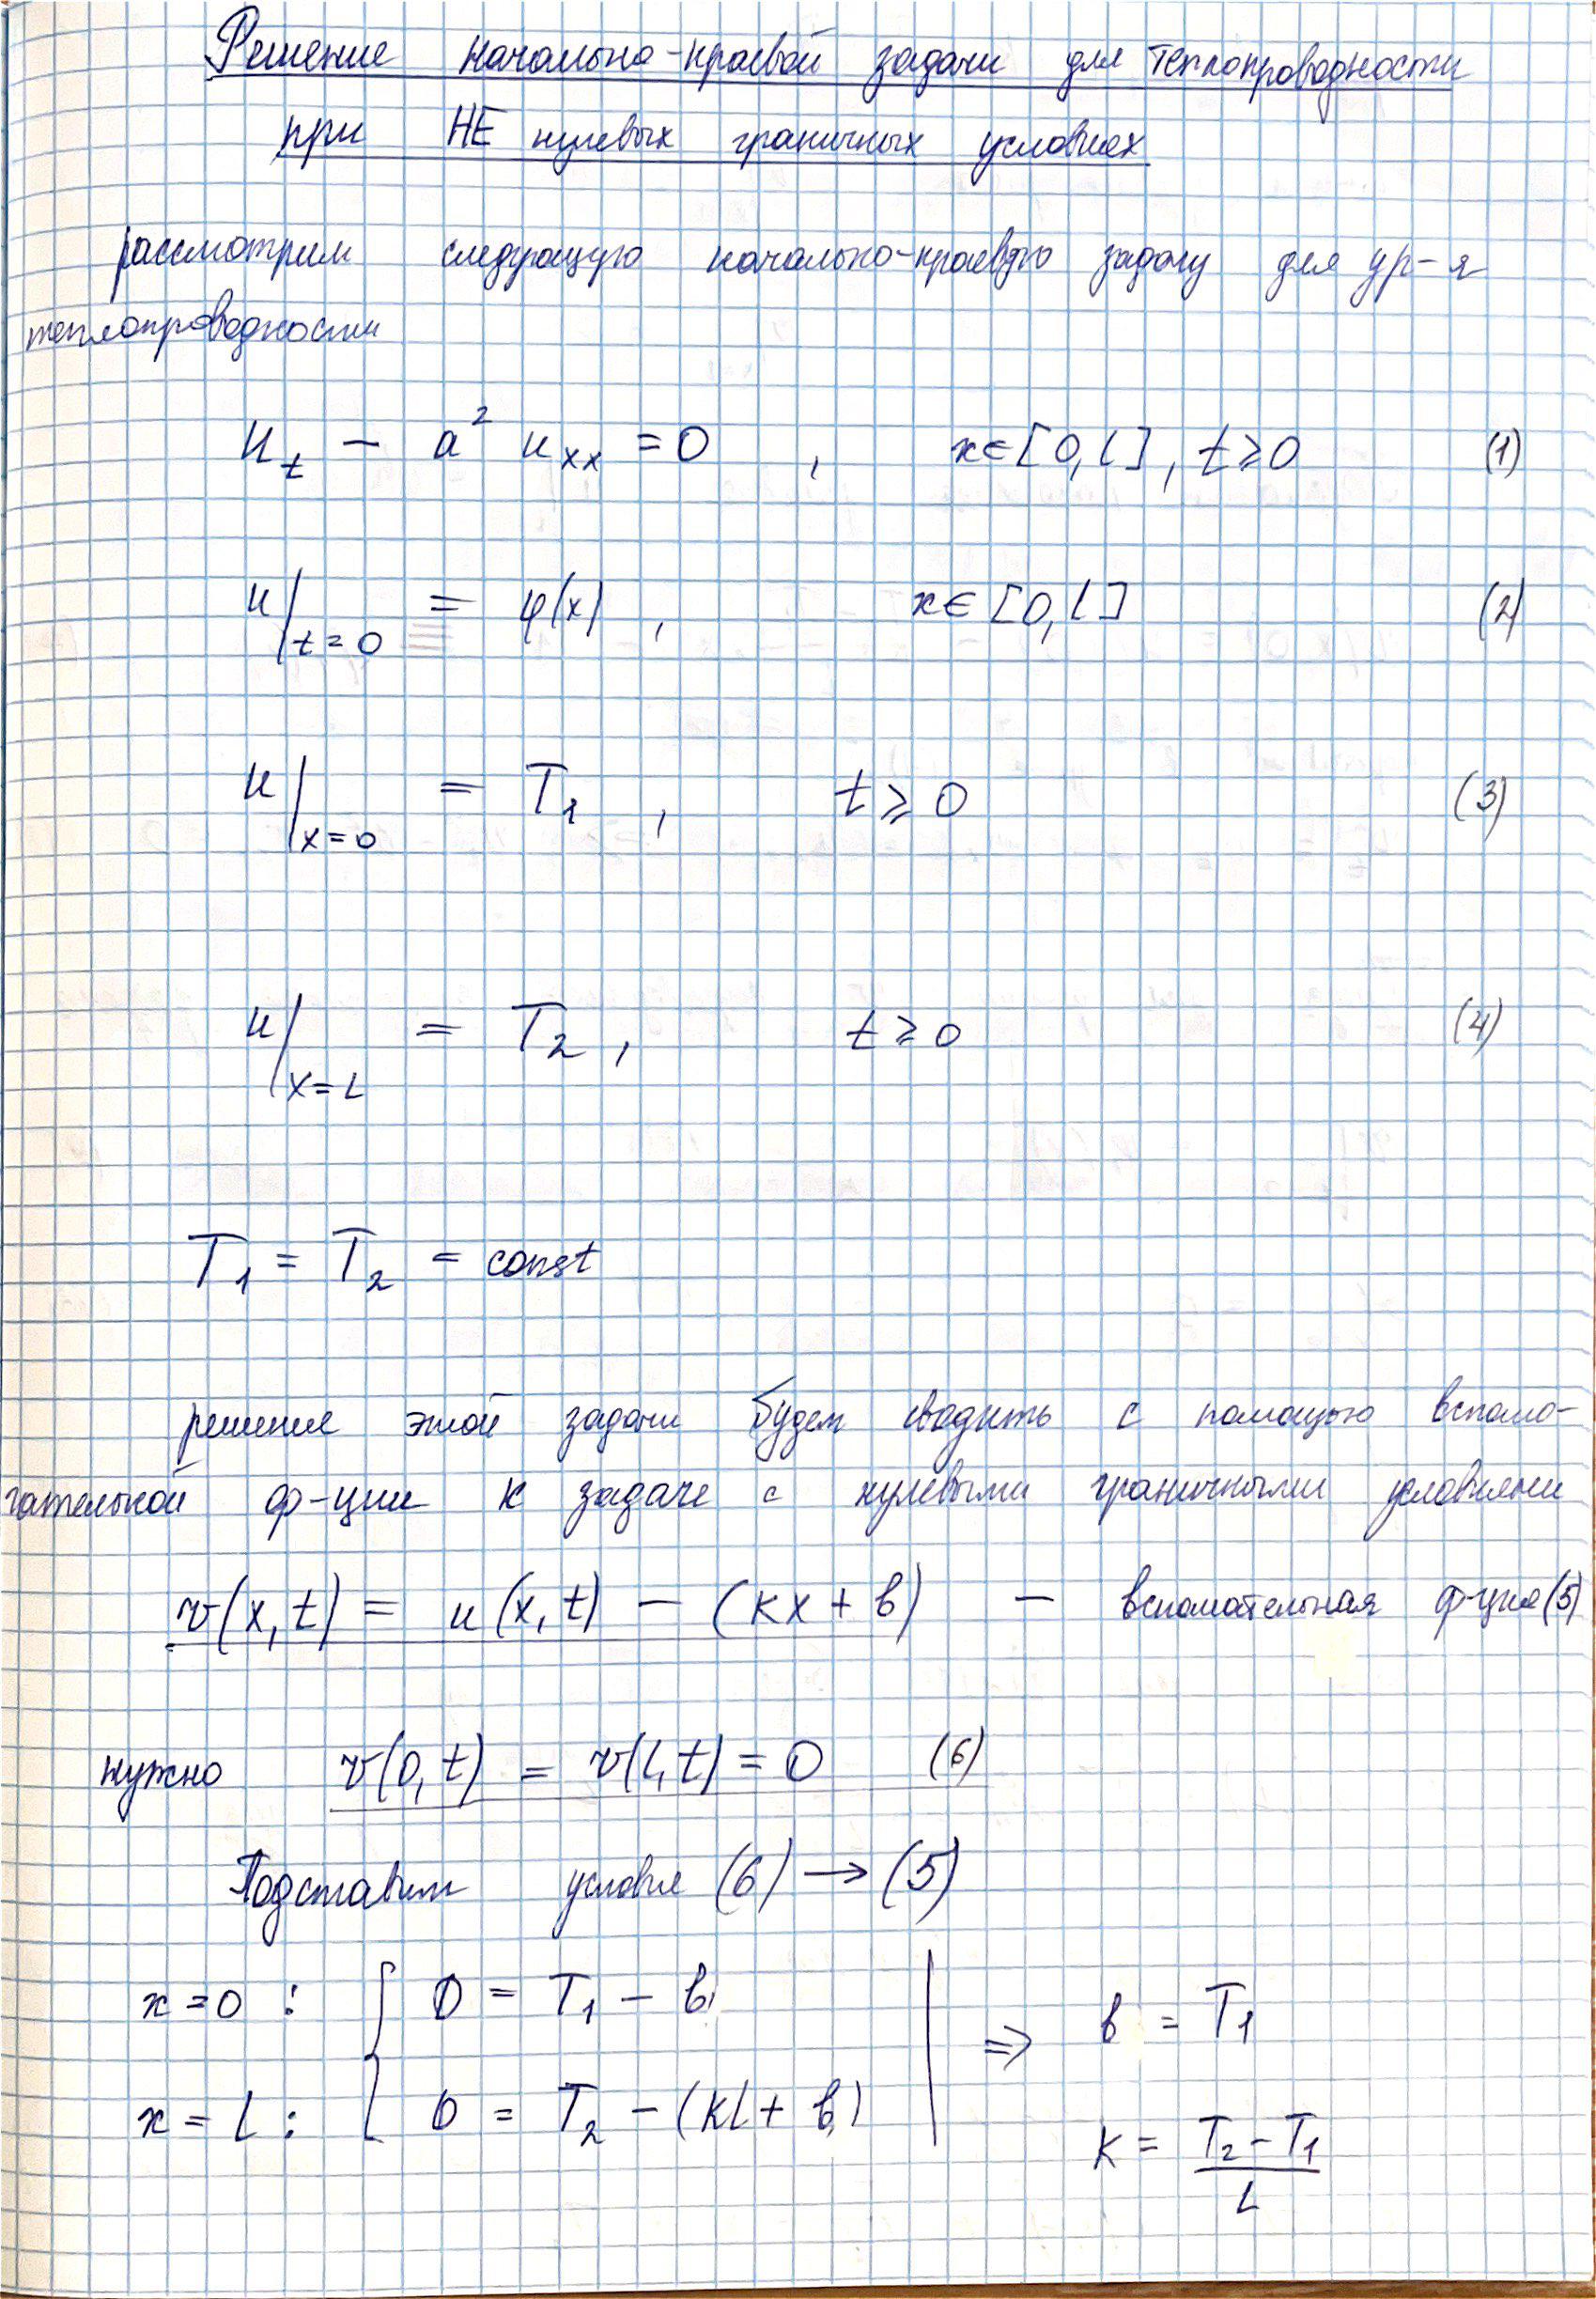 Решение начально-краевой задачи для теплопроводности
при НЕ нулевых граничных условиях
рассмотрим следующую начально-краевую задачу для ур-я
теплопроводности
u_t - a² u_xx = 0 , x∈[0,l], t⩾0 (1)
u|_{t=0} = φ(x) , x∈[0,l] (2)
u|_{x=0} = T₁ , t⩾0 (3)
u|_{x=L} = T₂ , t⩾0 (4)
T₁ = T₂ = const
решение этой задачи будем сводить с помощью вспомо-
гательной ф-ции к задаче с нулевыми граничными условиями
v(x,t) = u(x,t) - (kx + b) - вспомательная ф-ция (5)
нужно v(0,t) = v(l,t) = 0 (6)
Подставим условие (6) → (5)
x=0 : { 0 = T₁ - b | ⇒ b = T₁
x = L : { 0 = T₂ - (kL + b) | k = (T₂ - T₁)/L